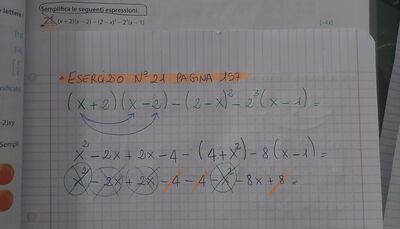 lettere
Semplifica le seguenti espressioni.
21 (x+2)(x−2)−(2−x)²−2³(x−1) [−4x]
• ESERCIZIO N°21 PAGINA 157
(x+2)(x−2)−(2−x)²−2³(x−1)=
x²−2x+2x−4−(4+x²)−8(x−1)=
x²−2x+2x−4−4−x²−8x+8=